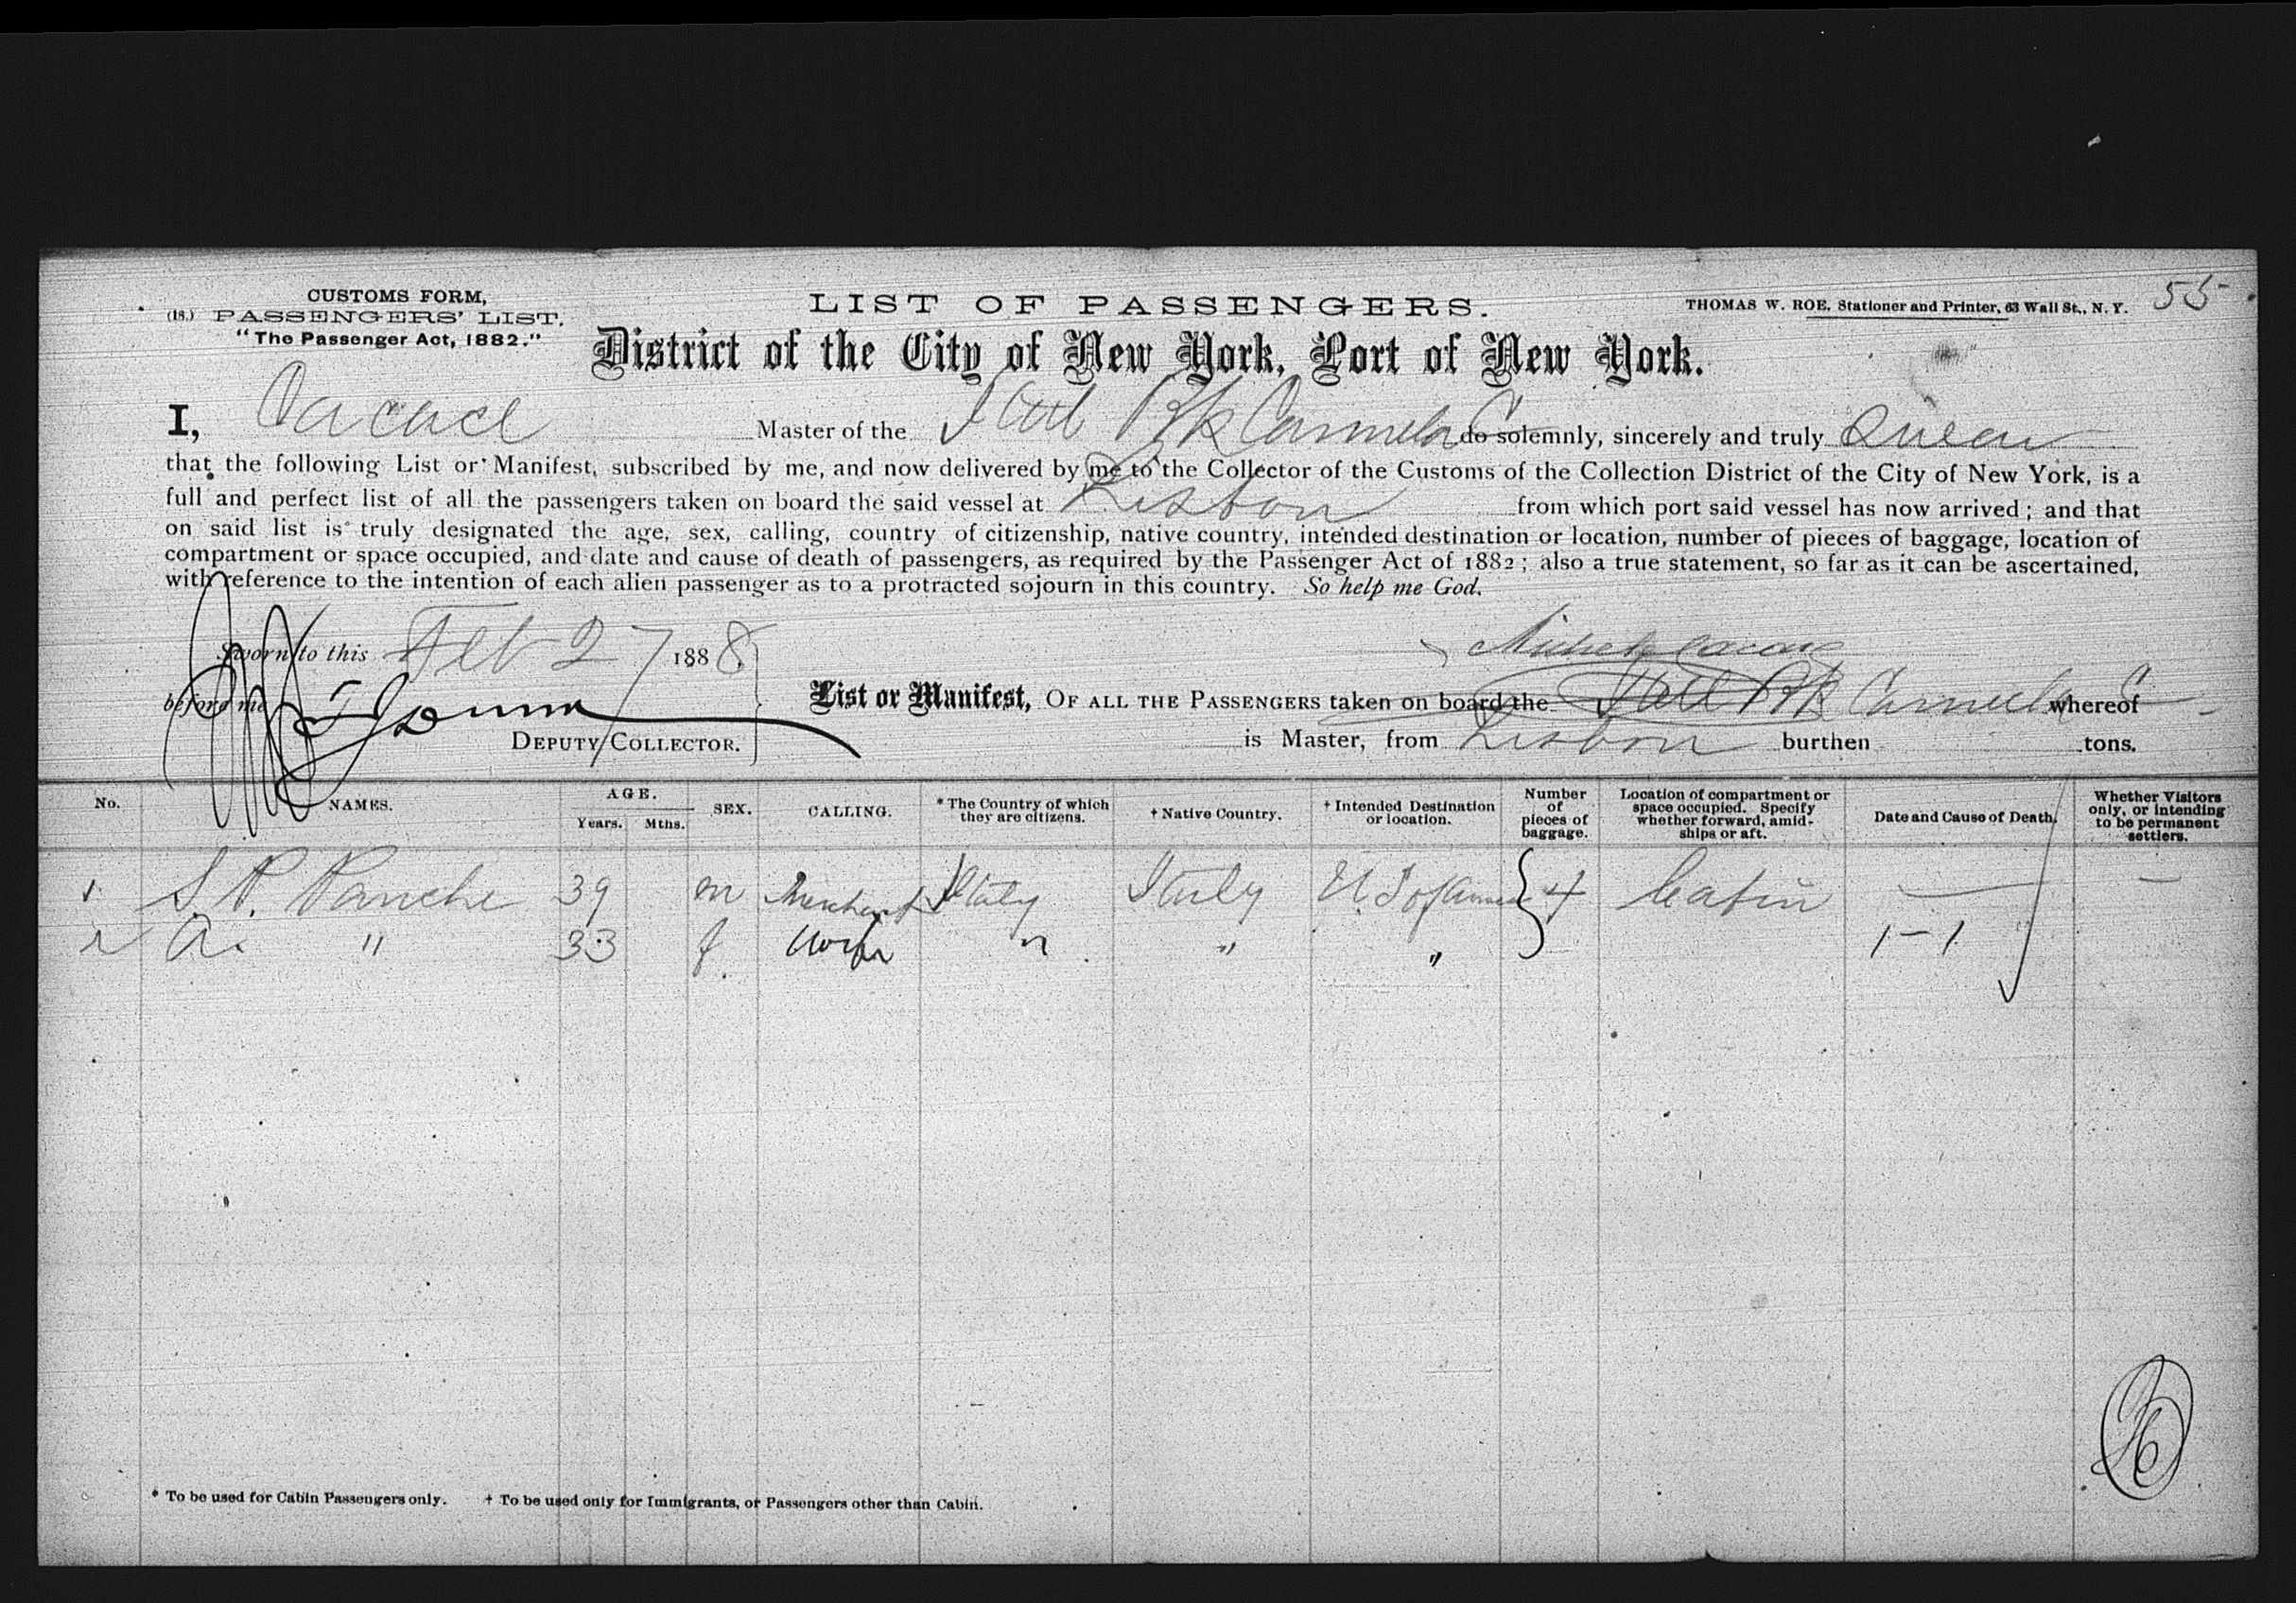 CUSTOMS FORM,
(18.) PASSENGERS' LIST.
"The Passenger Act, 1882."
LIST OF PASSENGERS.
THOMAS W. ROE, Stationer and Printer, 63 Wall St., N. Y.
55
District of the City of New York, Port of New York.
I, Master of the Ital Bk Carmela C do solemnly, sincerely and truly Swear
that the following List or Manifest, subscribed by me, and now delivered by me to the Collector of the Customs of the Collection District of the City of New York, is a
full and perfect list of all the passengers taken on board the said vessel at Lisbon from which port said vessel has now arrived; and that
on said list is truly designated the age, sex, calling, country of citizenship, native country, intended destination or location, number of pieces of baggage, location of
compartment or space occupied, and date and cause of death of passengers, as required by the Passenger Act of 1882; also a true statement, so far as it can be ascertained,
with reference to the intention of each alien passenger as to a protracted sojourn in this country. So help me God.
Sworn to this Feb 27 1888
before me
DEPUTY COLLECTOR.
List or Manifest, OF ALL THE PASSENGERS taken on board the Ital Bk Carmela C whereof
is Master, from Lisbon burthen tons.
No. NAMES. AGE. Years. Mths. SEX. CALLING. * The Country of which they are citizens. † Native Country. † Intended Destination or location. Number of pieces of baggage. Location of compartment or space occupied. Specify whether forward, amidships or aft. Date and Cause of Death. Whether Visitors only, or intending to be permanent settlers.
1 S. P. Panche 39 m Merchant Italy Italy U. S of America 4 Cabin — —
2 A. " 33 f Wife " " " 1-1
* To be used for Cabin Passengers only. † To be used only for Immigrants, or Passengers other than Cabin.